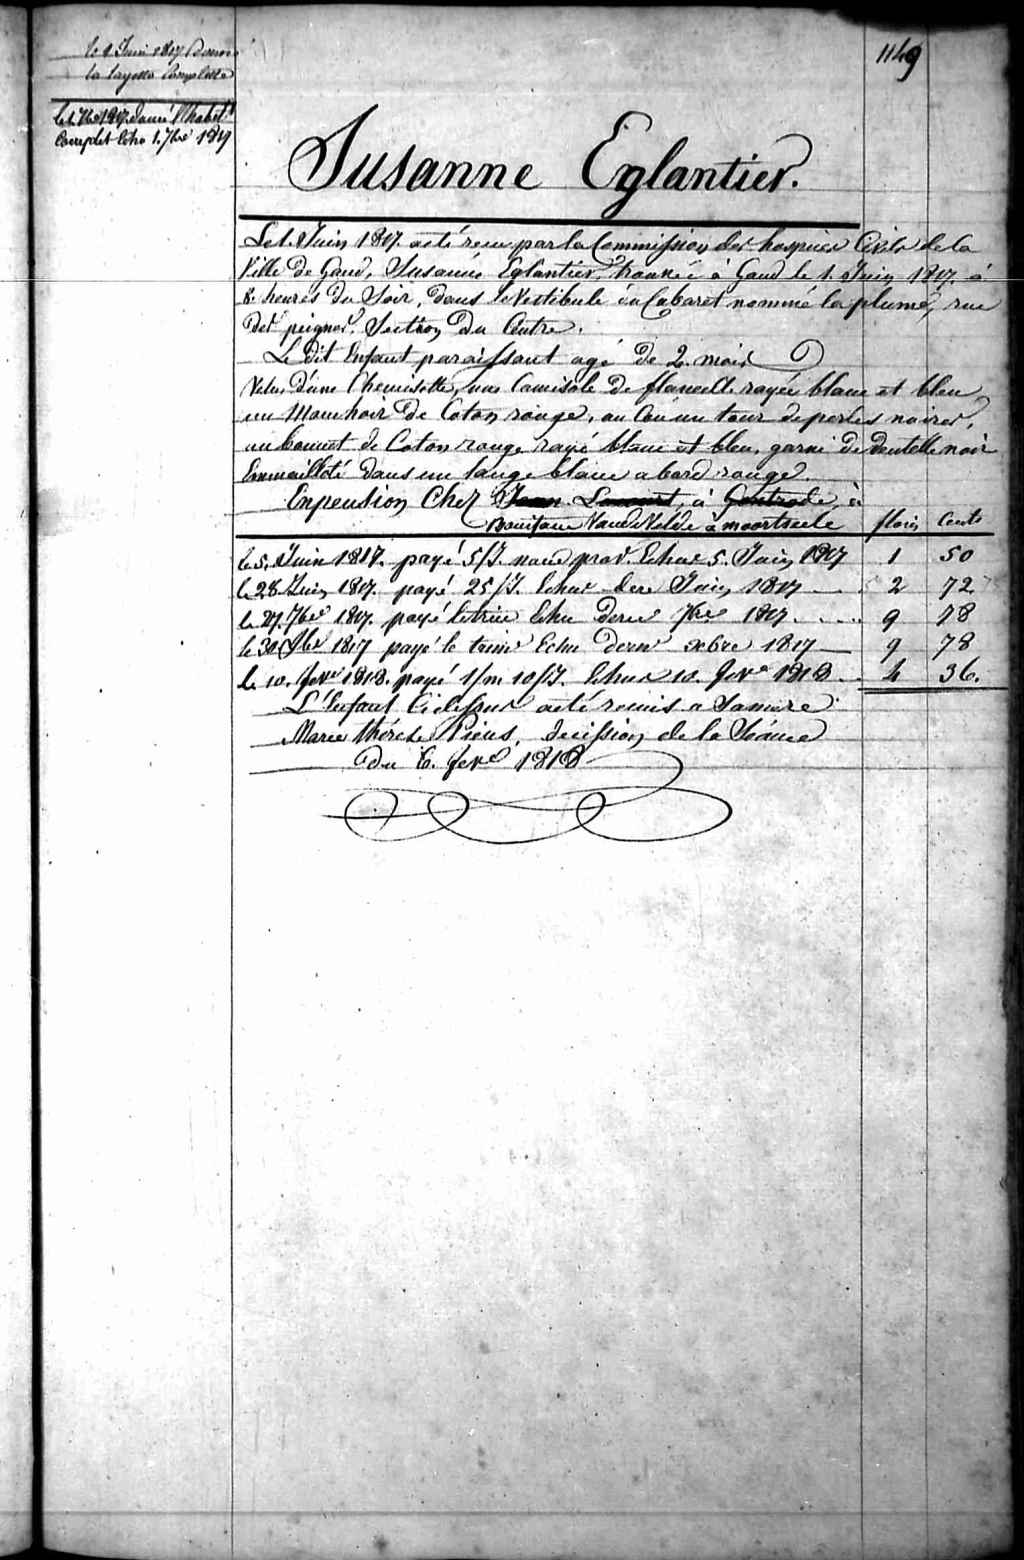 1149
le 1 Juin 1817 Donné
la layette Complette
le 1. 7bre 1817. donné l'habilt
Complet Echu 1. 7bre 1819
Susanne Eglantier.
Le 1. Juin 1817. a été recu par la Commission des hospices Civils de la
Ville de Gand, Susanne Eglantier, trouvée à Gand le 1. Juin 1817. à
8. heures du Soir, dans le Vestibule du Cabaret nommé la plume, rue
des peignes. Section du Centre.
Le dit Enfant paraissant agé de 2. mois
Vetu d'une Chemisette, une Camisole de flanelle rayée blanc et bleu,
un Mouchoir de Coton rouge, au Cou un tour de perles noires,
un bonnet de Coton rouge rayé blanc et bleu, garni de dentelle noir
Emmailloté dans un lange blanc a bord rouge.
En pension Chez Jean à Gontrode, à
Vande Velde a moortseele florin Cents
le 5. Juin 1817. payé 5/J. Echus 5. Juin 1817 1 50
le 28 Juin 1817. payé 25/J. Echus dere Juin 1817 2 72
le 27. 7bre 1817. payé le trim Echu dere 7bre 1817 9 78
le 30 1817 payé le trim Echu dern xbre 1817 9 78
le 10. fevr 1818. payé 1/m 10/J. Echus 10. fevr 1818 4 36.
L'Enfant Cidessus a été remis a Sa mère
Marie Thérèse Piens, decission de la Séance
du 6. fevr 1818